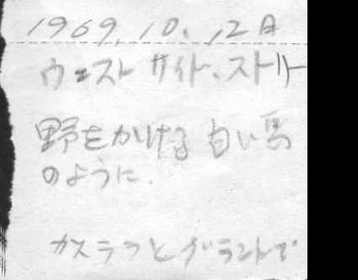 1969.10.12日
ウエストサイド・ストーリー
野をかける白い馬
のように.
カステラとグラントで